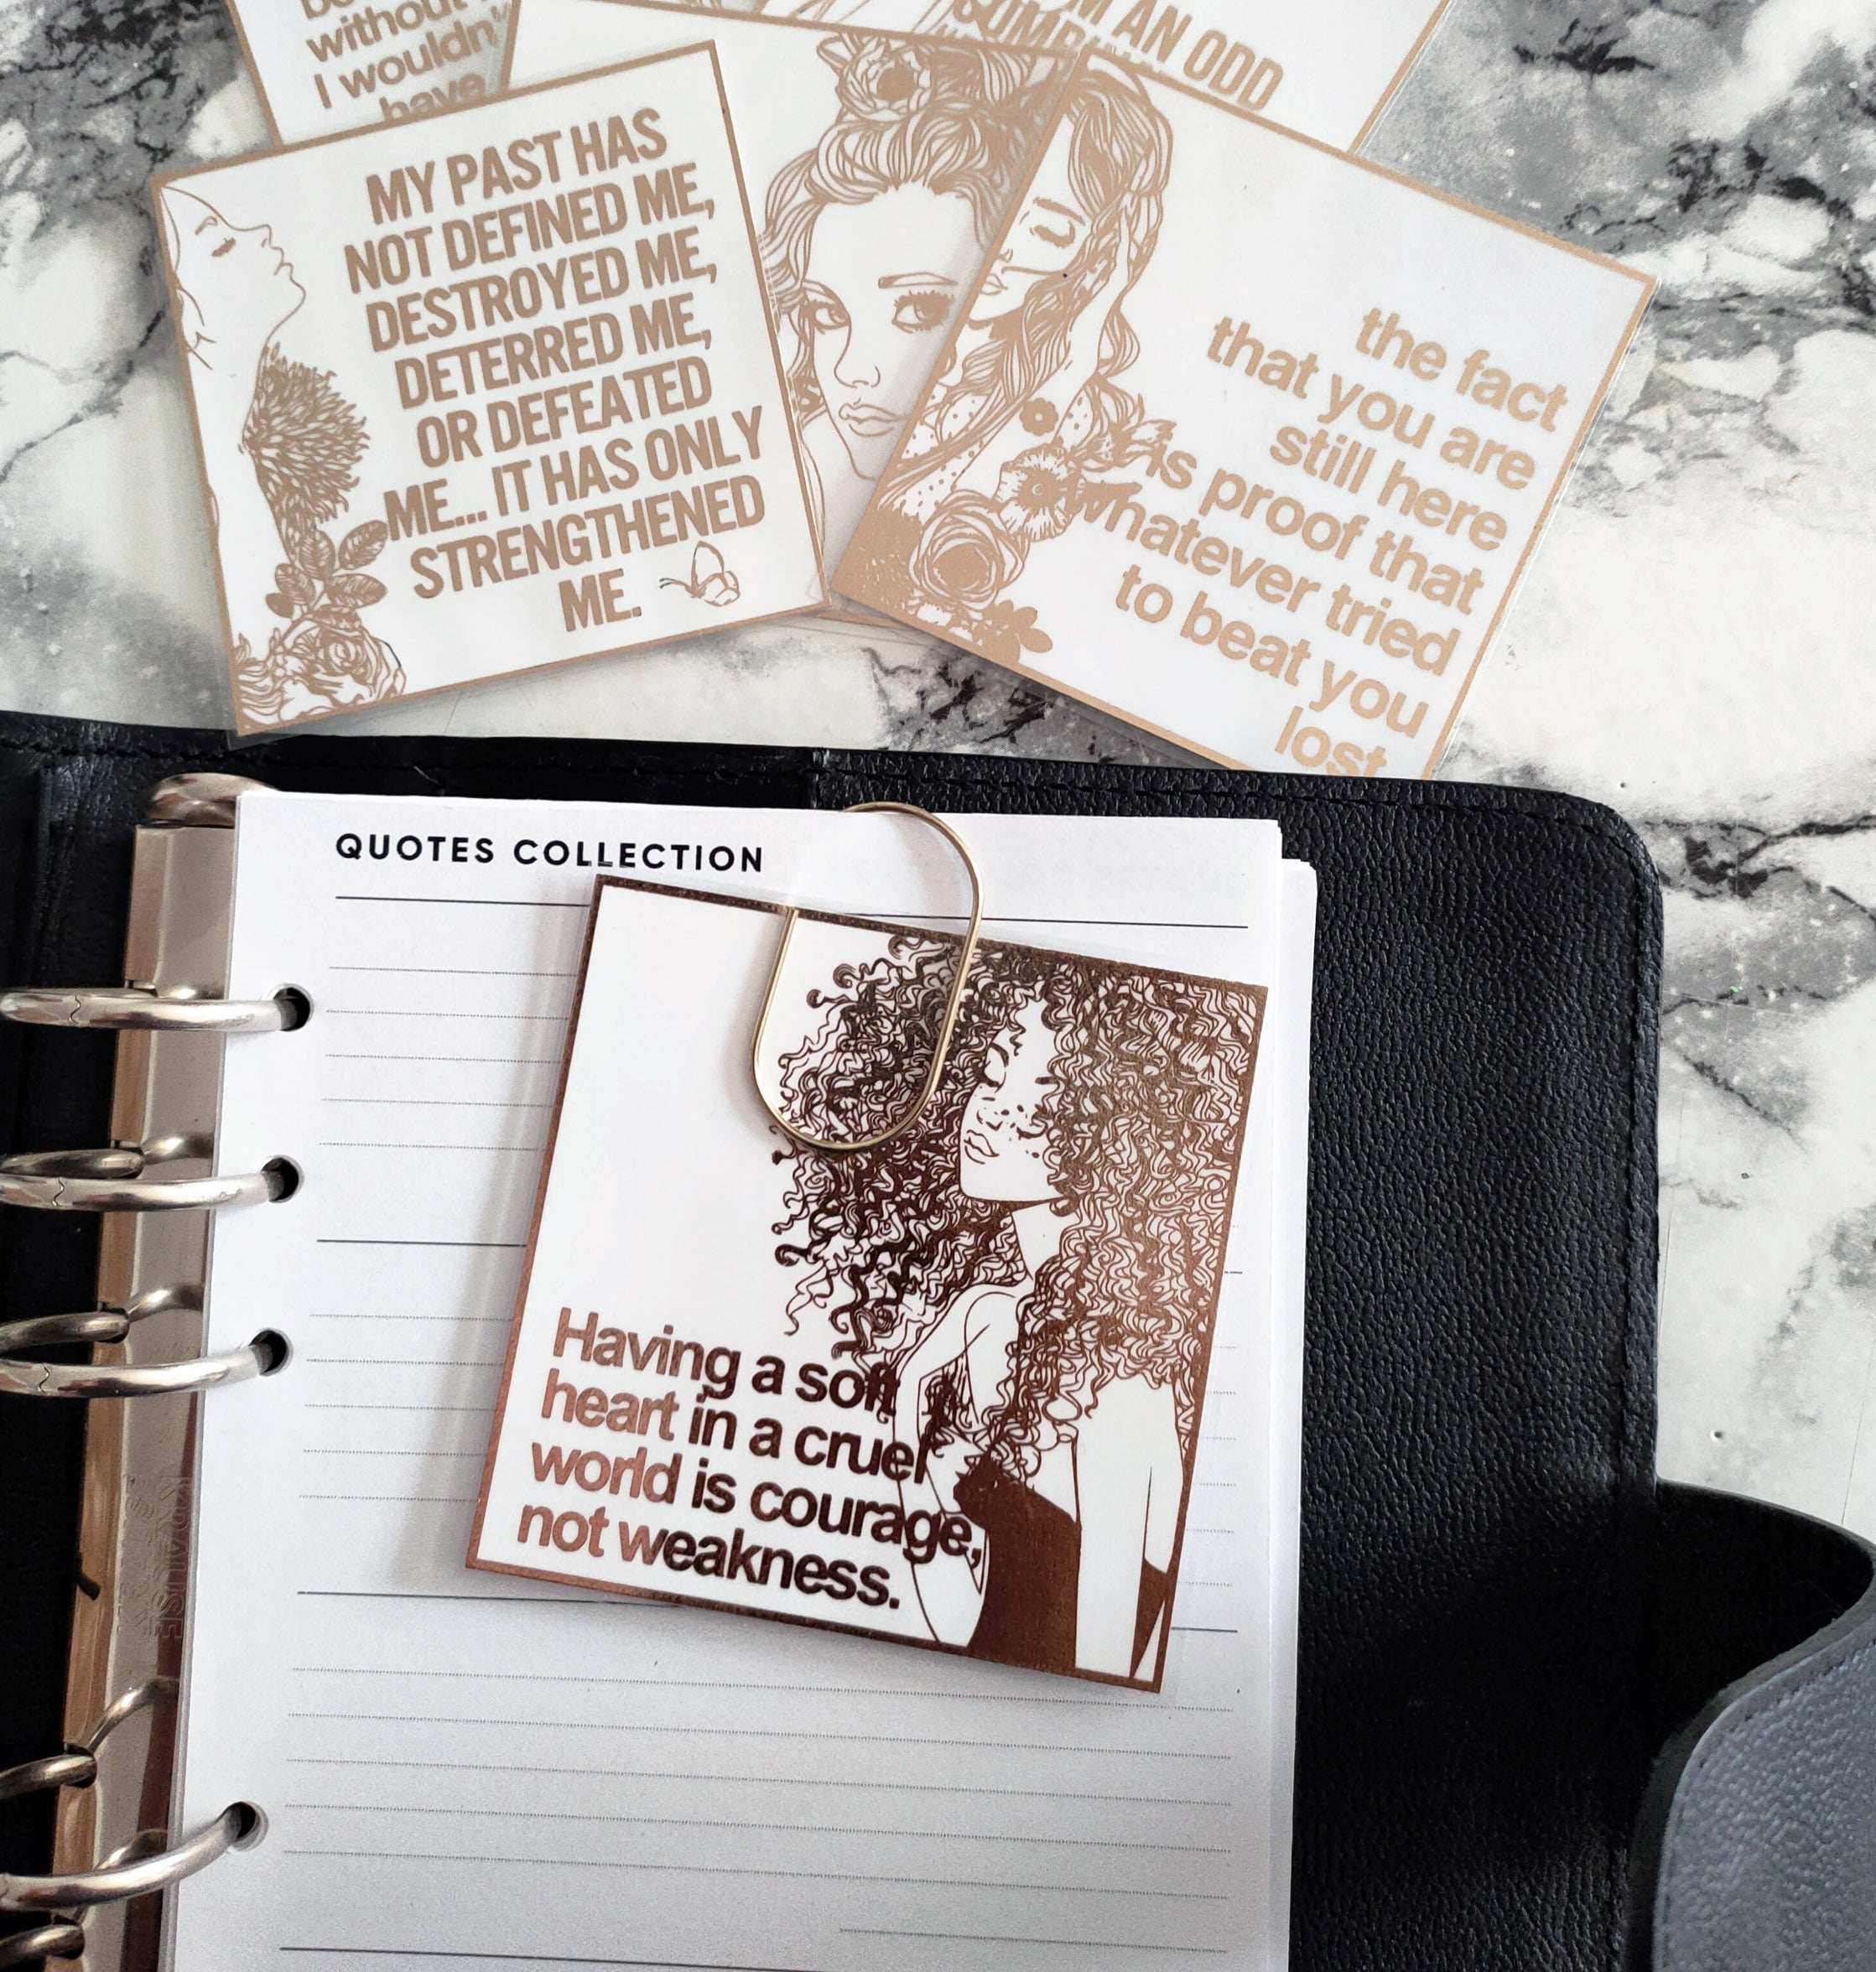 without
I wouldn'
have
AN ODD
MY PAST HAS
NOT DEFINED ME,
DESTROYED ME,
DETERRED ME,
OR DEFEATED
ME... IT HAS ONLY
STRENGTHENED
ME.
the fact
that you are
still here
is proof that
whatever tried
to beat you
lost
QUOTES COLLECTION
Having a soft
heart in a cruel
world is courage,
not weakness.